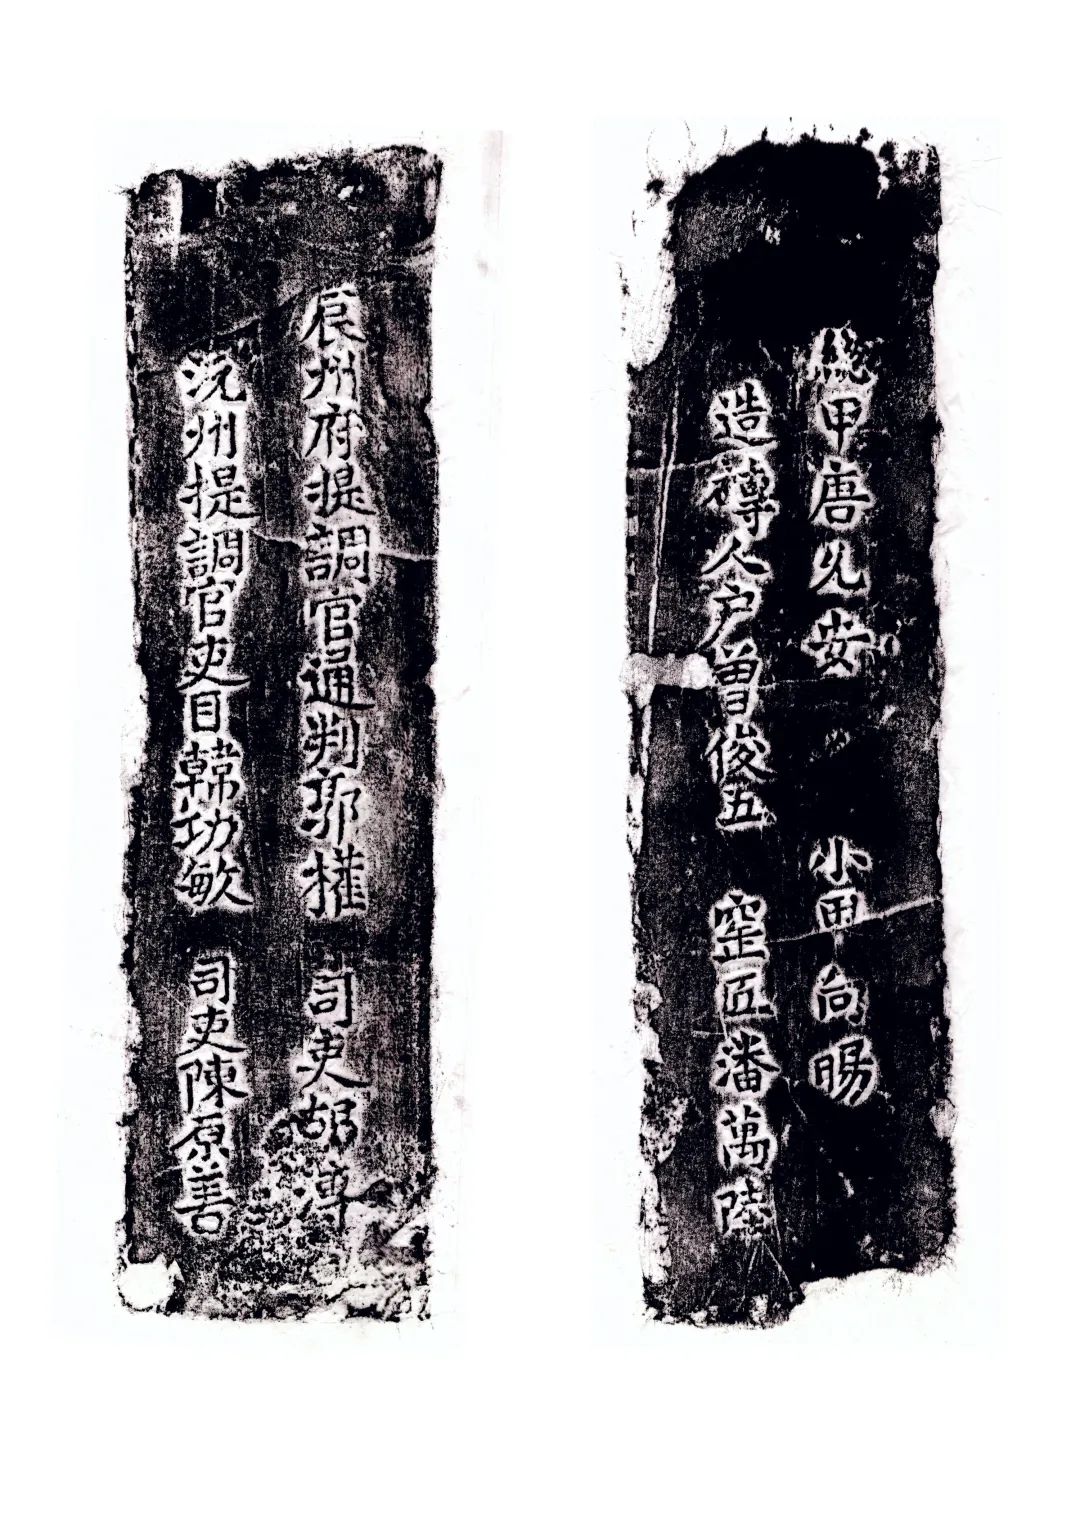 辰州府提調官通判郭權 司吏胡溥
沅州提調官吏目韓功敏 司吏陳原善
總甲唐允安 小甲向賜
造磚人户曾俊五 窑匠潘萬陸